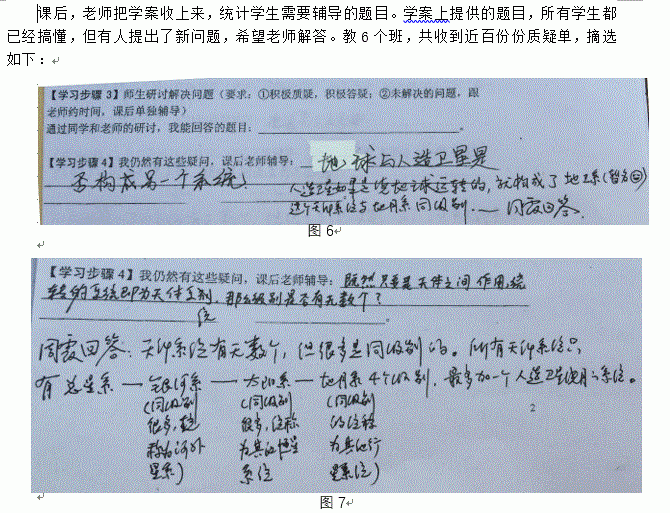 课后，老师把学案收上来，统计学生需要辅导的题目。学案上提供的题目，所有学生都
已经搞懂，但有人提出了新问题，希望老师解答。教6个班，共收到近百份份质疑单，摘选
如下：
【学习步骤 3】师生研讨解决问题（要求：①积极质疑，积极答疑；②未解决的问题，跟
老师约时间，课后单独辅导）
通过同学和老师的研讨，我能回答的题目：
【学习步骤 4】我仍然有这些疑问，课后老师辅导：地球与人造卫星是
否构成另一个系统！
人造卫星如果是绕地球运转的，就构成了地卫系(暂名)
这个天体系统与地月系同级别.——闫霞回答.
图 6
【学习步骤 4】我仍然有这些疑问，课后老师辅导：既然只要是天体之间作用绕
转的系统即为天体级别，那么级别是否有无数个？
闫霞回答：天体系统有无数个，但很多是同级别的。所有天体系统只
有总星系—银河系—太阳系—地月系4个级别，最多加一个人造卫地系统。
(同级别 (同级别 (同级别
很多，统 很多，统称 的统称
称为河外 为其他恒星 为其他行
星系) 系统 星系统)
2
图 7